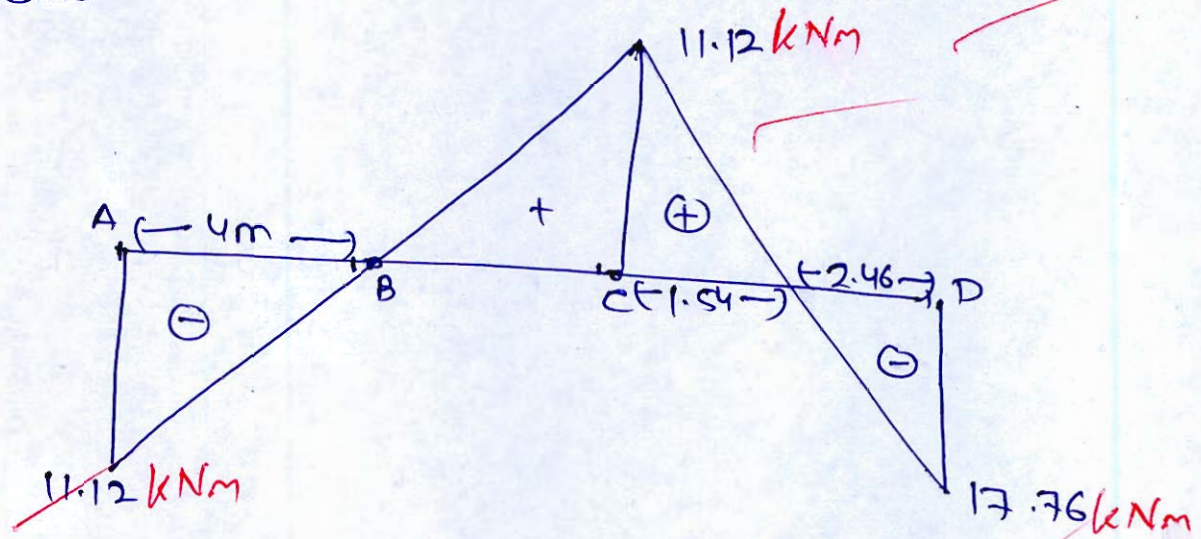 11.12 kNm
A (— 4m —)
+
⊕
B
C (-1.54-)
(-2.46-) D
⊖
⊖
11.12 kNm
17.76 kNm